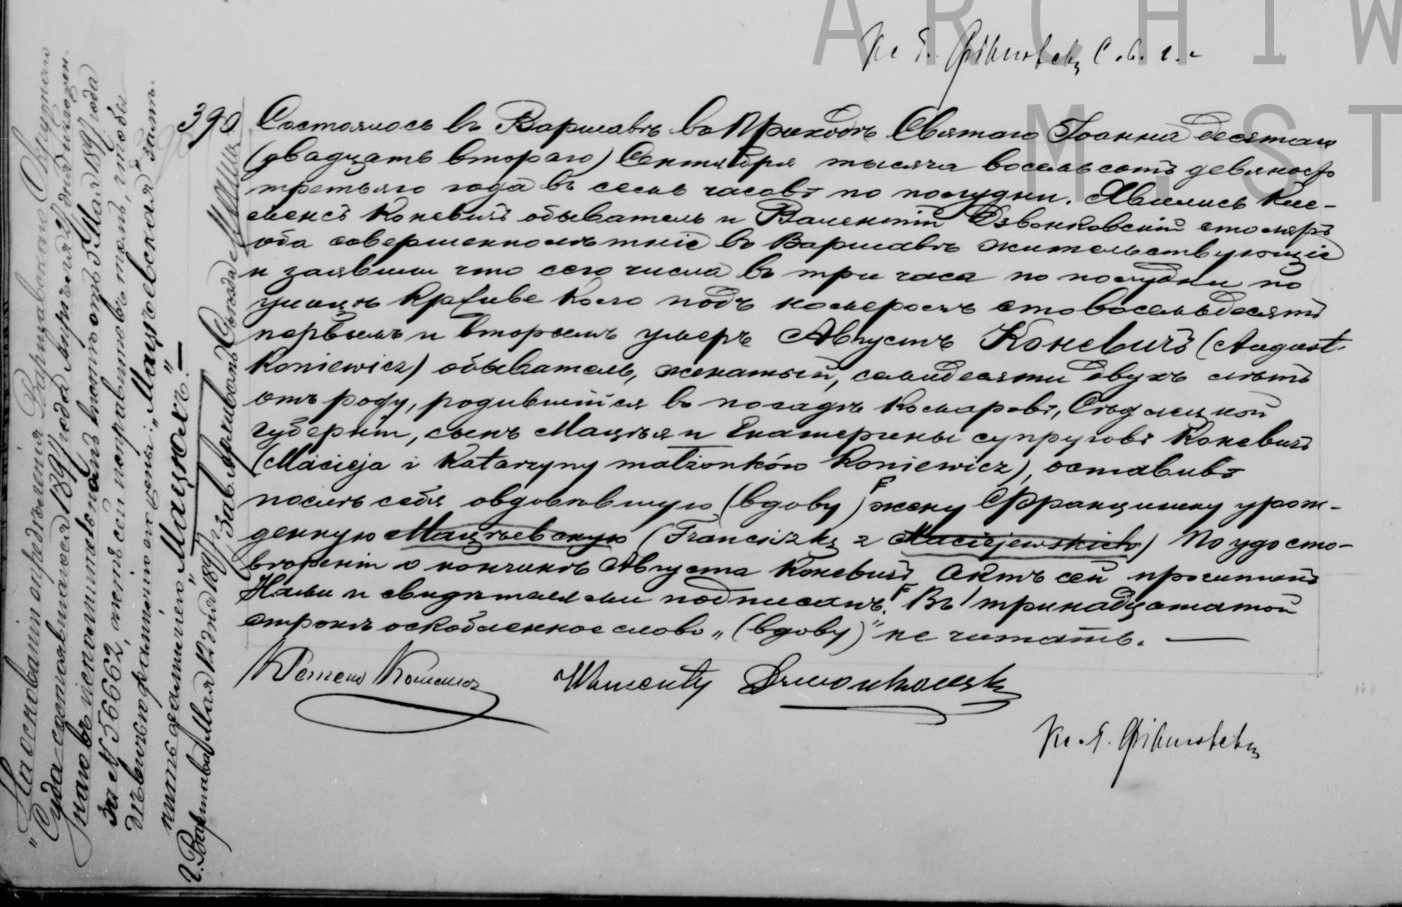 ARCHIW
M. ST
390
Состоялось въ Варшавѣ въ Приходѣ Святаго Іоанна десятаго
(двадцать втораго) Сентября тысяча восемьсотъ девяносто
третьяго года въ семь часовъ по полудни. Явились Кле-
менсъ Коневичъ обыватель и Валентій Дзвонковскій столяръ
оба совершеннолѣтніе въ Варшавѣ жительствующіе
и заявили что сего числа въ три часа по полудни по
улицѣ Крживе Коло подъ номеромъ сто восемьдесятъ
первымъ и вторымъ умеръ Августъ Коневичъ (August
Koniewicz) обыватель, женатый, семидесяти двухъ лѣтъ
отъ роду, родившійся въ посадѣ Комаровъ, Сѣдлецкой
губерніи, сынъ Мацѣя и Екатерины супруговъ Коневичъ
(Macieja i Katarzyny małżonków Koniewicz), оставивъ
послѣ себя овдовѣвшую (вдову) жену Францишку урож-
денную Мацѣевскую (Franciszkę z Maciejewskich) По удосто-
вѣреніи о кончинѣ Августа Коневичъ Актъ сей прочитанъ
Нами и свидѣтелями подписанъ. Въ тринадцатой
строкѣ оскобленное слово „(вдову)" не читать. —
Walenty Dzwonkowski
„На основаніи опредѣленія Варшавскаго Окружного
Суда состоявшагося 1897 года дня и изложен-
наго въ исполнительномъ листѣ отъ Мая 1897 года
за № 56662, актъ сей исправить въ томъ, чтобы
дѣвичью фамилію вмѣсто „Мацѣевская" 
читать „Мацюкъ". —
г. Варшава Мая 12 дня 1897 г. Зав. Архивомъ